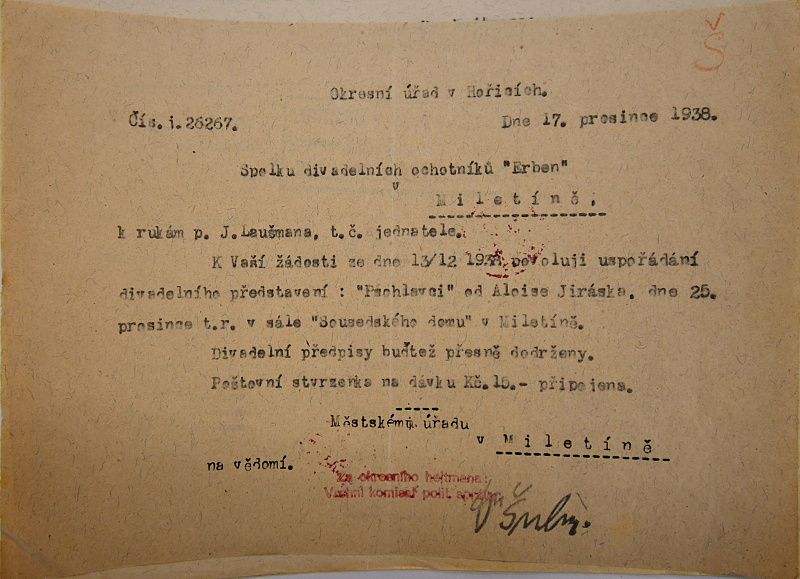 Š
Okresní úřad v Hořicích.
Čís. j. 26267.
Dne 17. prosince 1938.
Spolku divadelních ochotníků "Erben"
v
M i l e t í n ě,
k rukám p. J.Laušmana, t.č. jednatele.
K Vaší žádosti ze dne 13/12 1938 povoluji uspořádání
divadelního představení : "Psohlavci" od Aloise Jiráska, dne 25.
prosince t.r. v sále "Sousedského domu" v Miletíně.
Divadelní předpisy buďtež přesně dodrženy.
Poštovní stvrzenka na dávku Kč.15.- připojena.
Městskému úřadu
v M i l e t í n ě
na vědomí.
Za okresního hejtmana:
Vrchní komisař polit. správy: